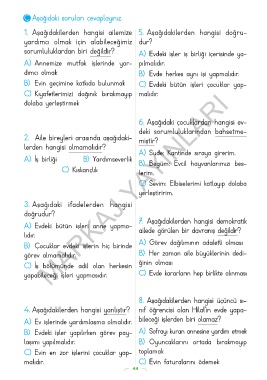 Aşağıdaki soruları cevaplayınız.
1. Aşağıdakilerden hangisi ailemize
yardımcı olmak için alabileceğimiz
sorumluluklardan biri değildir?
A) Annemize mutfak işlerinde yar-
dımcı olmak
B) Evin geçimine katkıda bulunmak
C) Kıyafetlerimizi dağınık bırakmayıp
dolaba yerleştirmek
2. Aile bireyleri arasında aşağıdaki-
lerden hangisi olmamalıdır?
A) İş birliği B) Yardımseverlik
C) Kıskanlık
3. Aşağıdaki ifadelerden hangisi
doğrudur?
A) Evdeki bütün işleri anne yapma-
lıdır.
B) Çocuklar evdeki işlerin hiç birinde
görev almamalıdır.
C) İş bölümünde adil olan herkesin
yapabileceği işleri yapmasıdır.
4. Aşağıdakilerden hangisi yanlıştır?
A) Ev işlerinde yardımlaşma olmalıdır.
B) Evdeki işler yapılırken görev pay-
laşımı yapılmalıdır.
C) Evin en zor işlerini çocuklar yap-
malıdır.
5. Aşağıdakilerden hangisi doğru-
dur?
A) Evdeki işler iş birliği içerisinde ya-
pılmalıdır.
B) Evde herkes aynı işi yapmalıdır.
C) Evdeki bütün işleri çocuklar yap-
malıdır.
6. Aşağıdaki çocuklardan hangisi ev-
deki sorumluluklarından bahsetme-
miştir?
A) Sude: Kantinde sıraya girerim.
B) Begüm: Evcil hayvanlarımızı bes-
lerim.
C) Sevim: Elbiselerimi katlayıp dolaba
yerleştiririm.
7. Aşağıdakilerden hangisi demokratik
ailede görülen bir davranış değildir?
A) Görev dağılımının adaletli olması
B) Her zaman aile büyüklerinin dedi-
ğinin olması
C) Evde kararların hep birlikte alınması
8. Aşağıdakilerden hangisi üçüncü sı-
nıf öğrencisi olan Hilal'in evde yapa-
bileceği işlerden biri olamaz?
A) Sofrayı kuran annesine yardım etmek
B) Oyuncaklarını ortada bırakmayıp
toplamak
C) Evin faturalarını ödemek
44